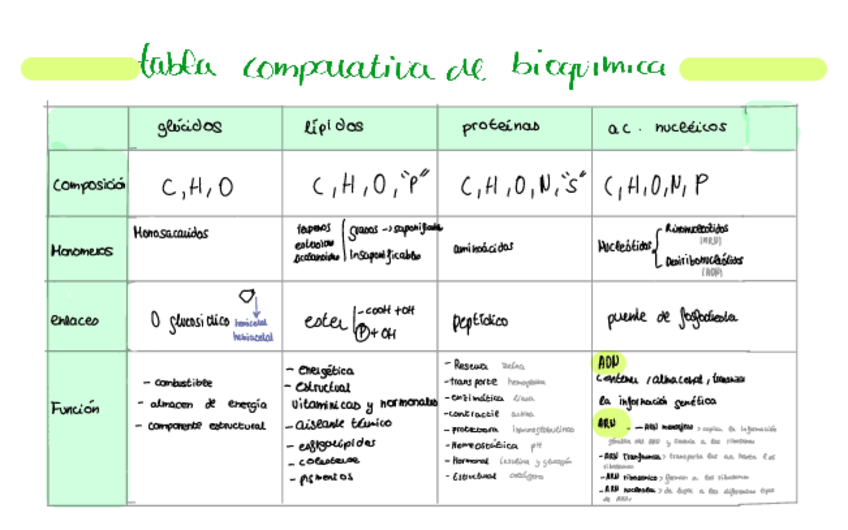 tabla comparativa de bioquímica
glúcidos
lípidos
proteínas
ac. nucleicos
Composición
C, H, O
C, H, O, "P"
C, H, O, N, "S"
C, H, O, N, P
Monomeros
Monosacaridos
terpenos
esteroides
grasas -> saponificable
Insaponificables
aminoácidos
Nucleótidos
Ribonucleotidos
(ARN)
Desoxiribonucleótidos
(ADN)
enlaces
O glucosídico
hemicetal
hemiacetal
ester
-COOH + OH
P + OH
peptídico
puente de fosfodiester
Función
- combustible
- almacen de energía
- componente estructural
- Energética
- Estructual
vitaminicas y hormonales
- aislante térmico
- esfigolípidos
- colesterol
- pigmentos
- Reserva
- transporte hemoglobina
- enzimática
- contractil actina
- protectora inmunoglobulinas
- Homeostática pH
- Hormonal insulina y glucagón
- Estructural colágeno
ADN
contener, almacenar, transmitir
la información genética
ARN
- ARN mensajero > copia la información
genética del ADN y llevarla a los ribosomas
- ARN Transferencia > transporta los aa hasta los
ribosomas
- ARN ribosomico > forman a los ribosomas
- ARN nucleolar > da lugar a los diferentes tipos
de ARN